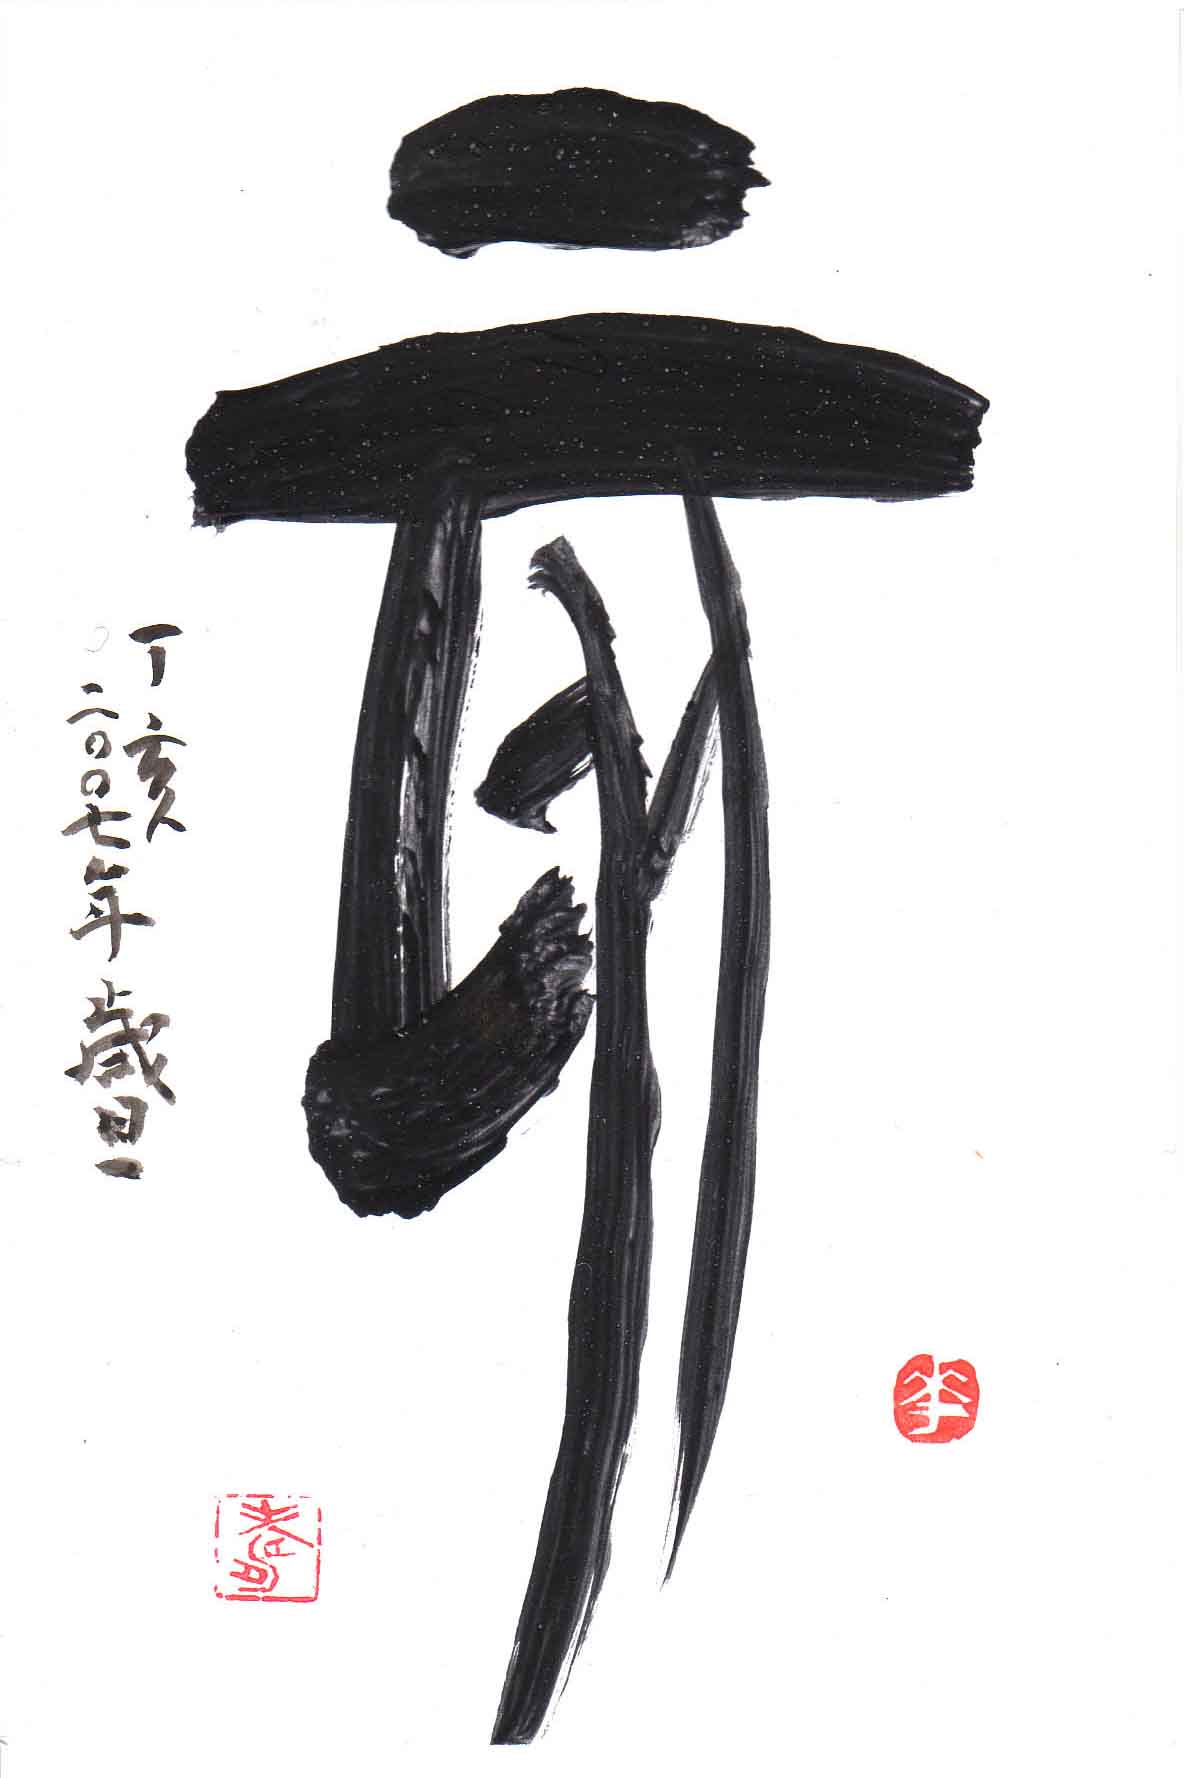 亥
丁亥
二〇〇七年 歳旦